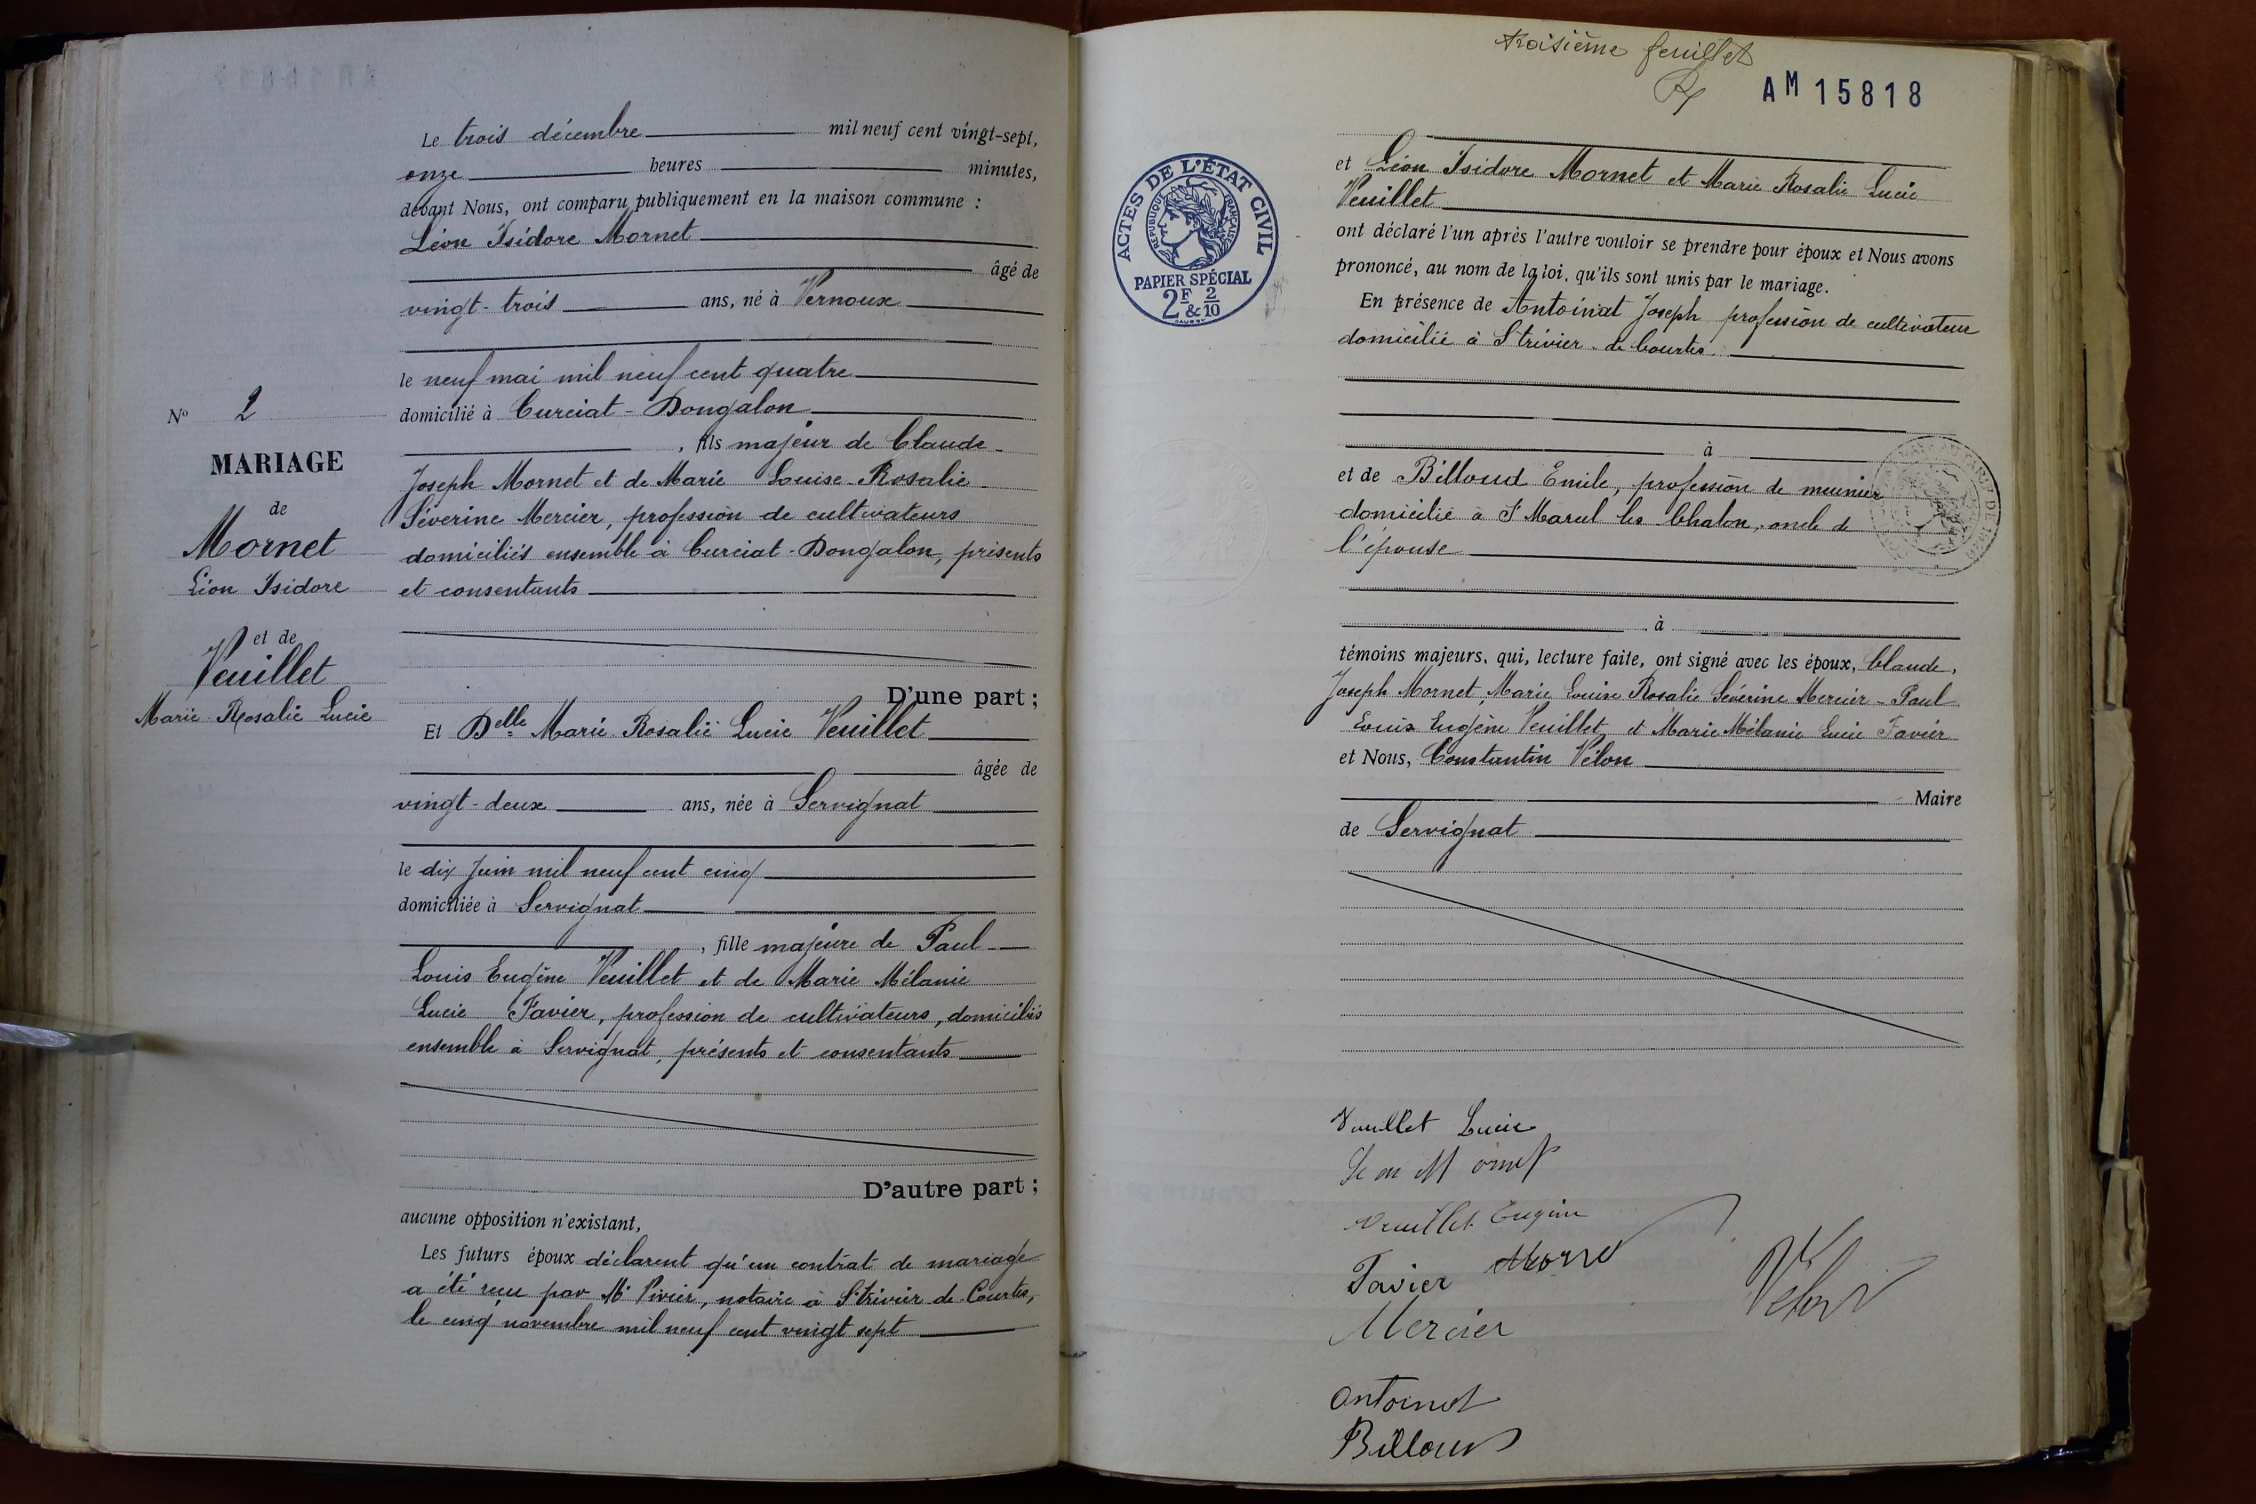 Le trois décembre mil neuf cent vingt-sept,
onze heures minutes,
devant Nous, ont comparu publiquement en la maison commune :
Léon Isidore Mornet
âgé de
vingt-trois ans, né à Vernoux
le neuf mai mil neuf cent quatre
domicilié à Curciat-Dongalon
, fils majeur de Claude
Joseph Mornet et de Marie Louise Rosalie
Séverine Mercier, profession de cultivateurs
domiciliés ensemble à Curciat-Dongalon, présents
et consentants
D'une part ;
Et Delle Marie Rosalie Lucie Veuillet
âgée de
vingt-deux ans, née à Servignat
le dix juin mil neuf cent cinq
domiciliée à Servignat
, fille majeure de Paul
Louis Eugène Veuillet et de Marie Mélanie
Lucie Favier, profession de cultivateurs, domiciliés
ensemble à Servignat, présents et consentants
D'autre part ;
aucune opposition n'existant,
Les futurs époux déclarent qu'un contrat de mariage
a été reçu par Me Vivier, notaire à St trivier de Courtes,
le cinq novembre mil neuf cent vingt sept
No 2
MARIAGE
de
Mornet
Léon Isidore
et de
Veuillet
Marie Rosalie Lucie
troisième feuillet
AM 15818
ACTES DE L'ÉTAT CIVIL
RÉPUBLIQUE FRANÇAISE
PAPIER SPÉCIAL
2F & 2/10
et Léon Isidore Mornet et Marie Rosalie Lucie
Veuillet
ont déclaré l'un après l'autre vouloir se prendre pour époux et Nous avons
prononcé, au nom de la loi, qu'ils sont unis par le mariage.
En présence de Antoinat Joseph profession de cultivateur
domicilié à St trivier de Courtes
à
et de Billoud Emile, profession de meunier
domicilié à St Marcel les Chalon, oncle de
l'épouse
à
témoins majeurs, qui, lecture faite, ont signé avec les époux, Claude,
Joseph Mornet, Marie Louise Rosalie Séverine Mercier - Paul
Louis Eugène Veuillet, et Marie Mélanie Lucie Favier
et Nous, Constantin Vélon
Maire
de Servignat
Veuillet Lucie
Léon Mornet
Veuillet Eugène
Favier Morne
Velon
Mercier
Antoinat
Billoud